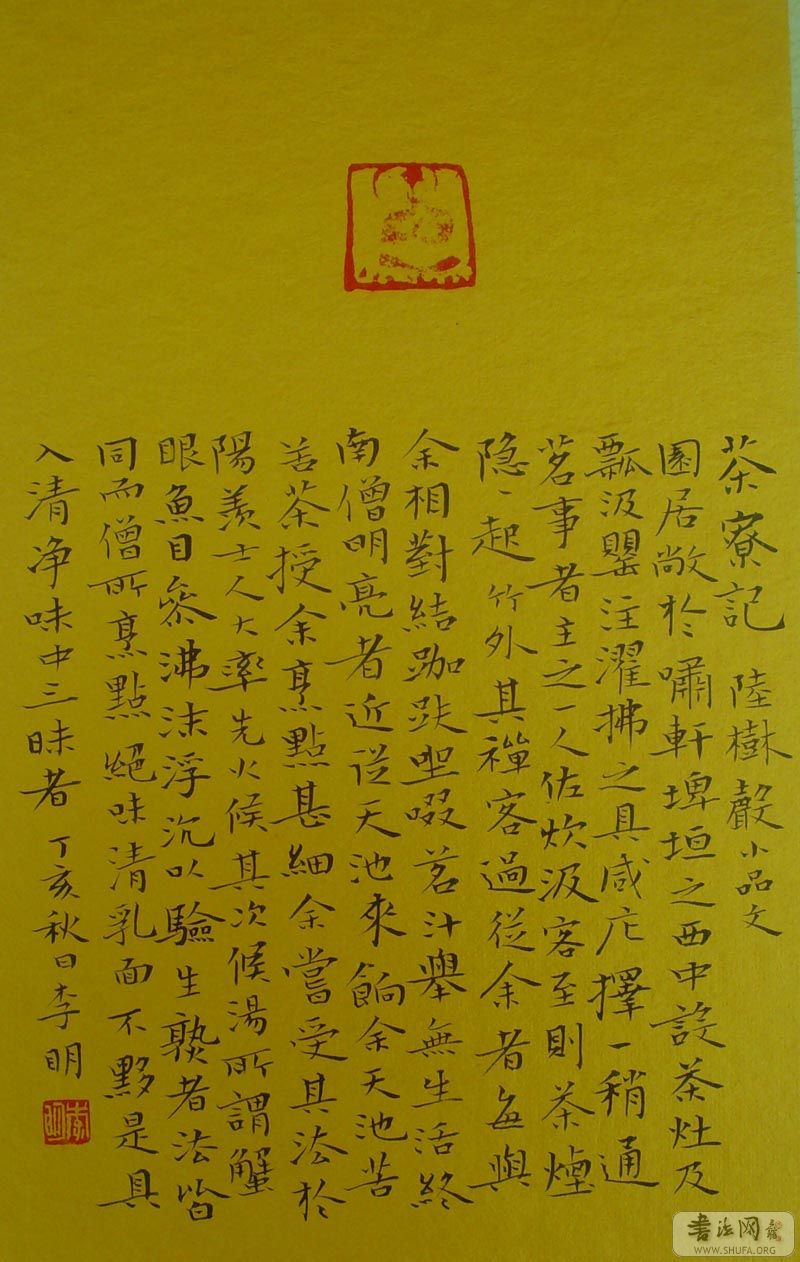 茶寮記 陸樹聲小品文
園居敞於嘯軒埤垣之西中設茶灶及
瓢汲罌注濯拂之具咸庀擇一稍通
茗事者主之一人佐炊汲客至則茶煙
隐〻起竹外其禪客過從余者每與
余相對結跏趺坐啜茗汁舉無生活終
南僧明亮者近從天池來餉余天池苦
善茶授余烹點甚細余嘗受其法於
陽羨士人大率先火候其次候湯所謂蟹
眼魚目叅沸沫浮沉以驗生熟者法皆
同而僧所烹點絕味清乳面不黟是具
入清净味中三昧者 丁亥秋日李明
李明
书法网
WWW.SHUFA.ORG